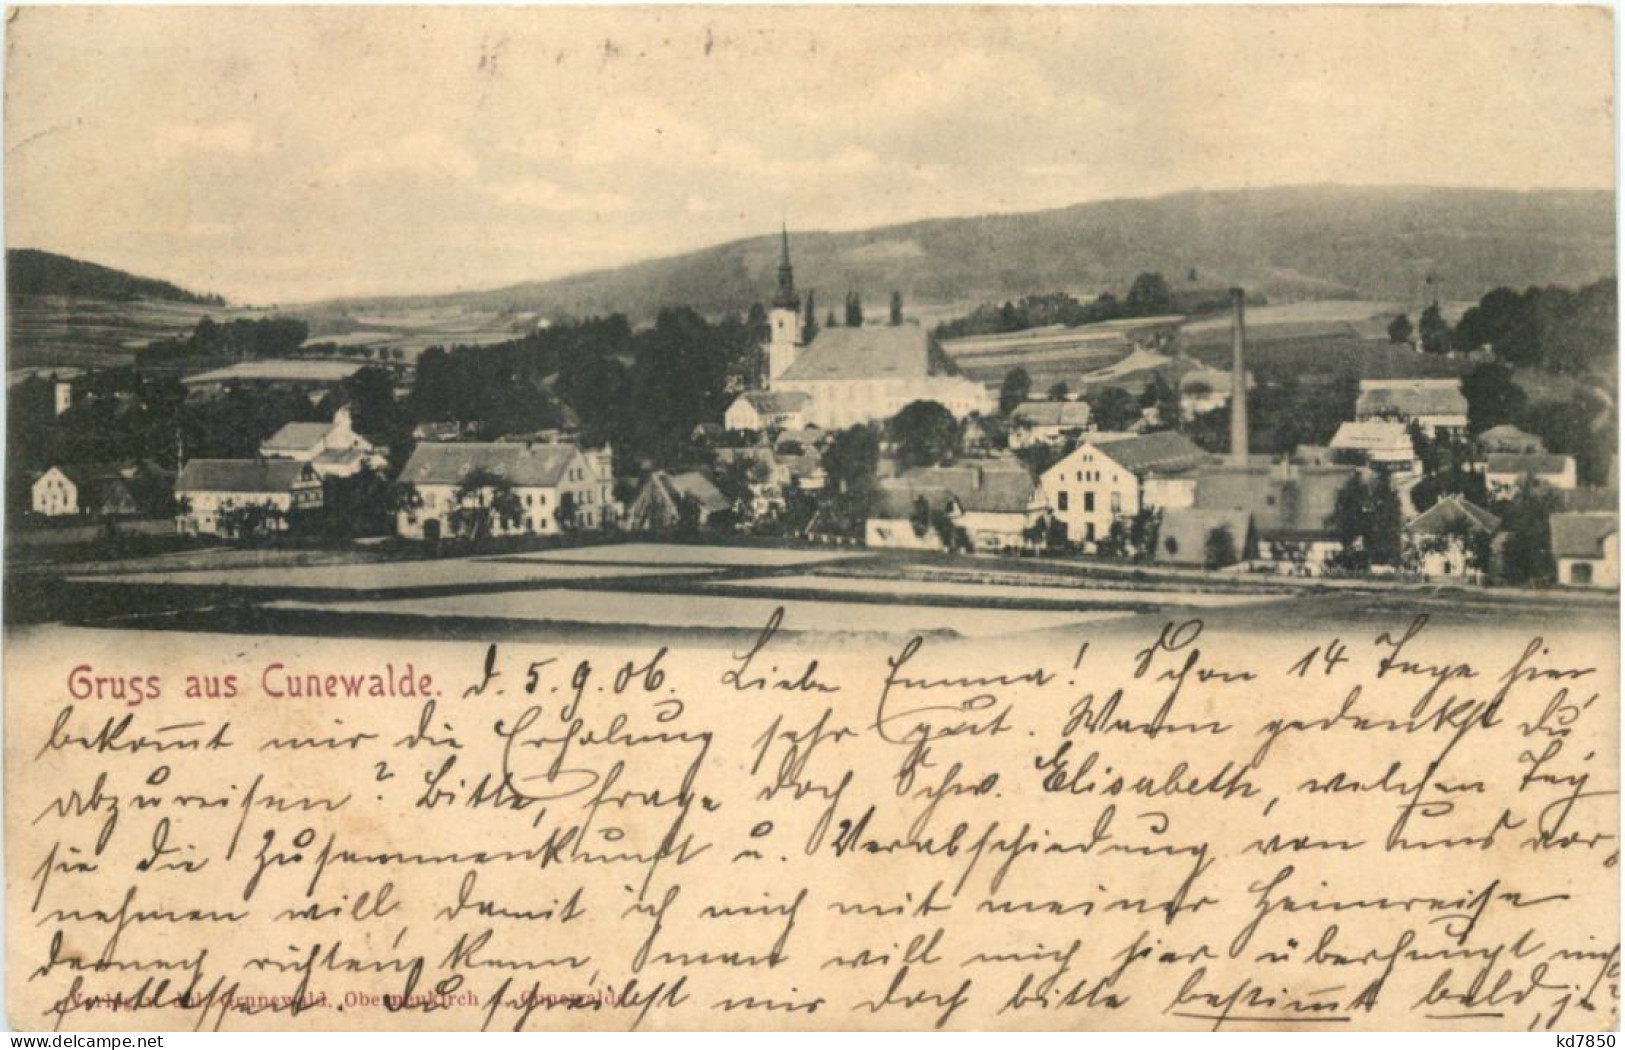 Gruss aus Cunewalde. d. 5.9.06. Liebe Emma! Schon 14 Tage hier
bekom̅t mir die Erholung sehr gut. Wann gedenkst du
abzureisen? Bitte, frage doch Schw. Elisabeth, welchen Tag
sie die Zusammenkunft u. Verabschiedung von uns vor-
nehmen will, damit ich mich mit meiner Heimreise
darnach richten kann, man will mich hier überhaupt nicht
fortlassen. Du schreibst mir doch bitte bestim̅t bald, ja?
Verlag v. Grunewald, Oberneukirch Cunewalde
delcampe.net
kd7850